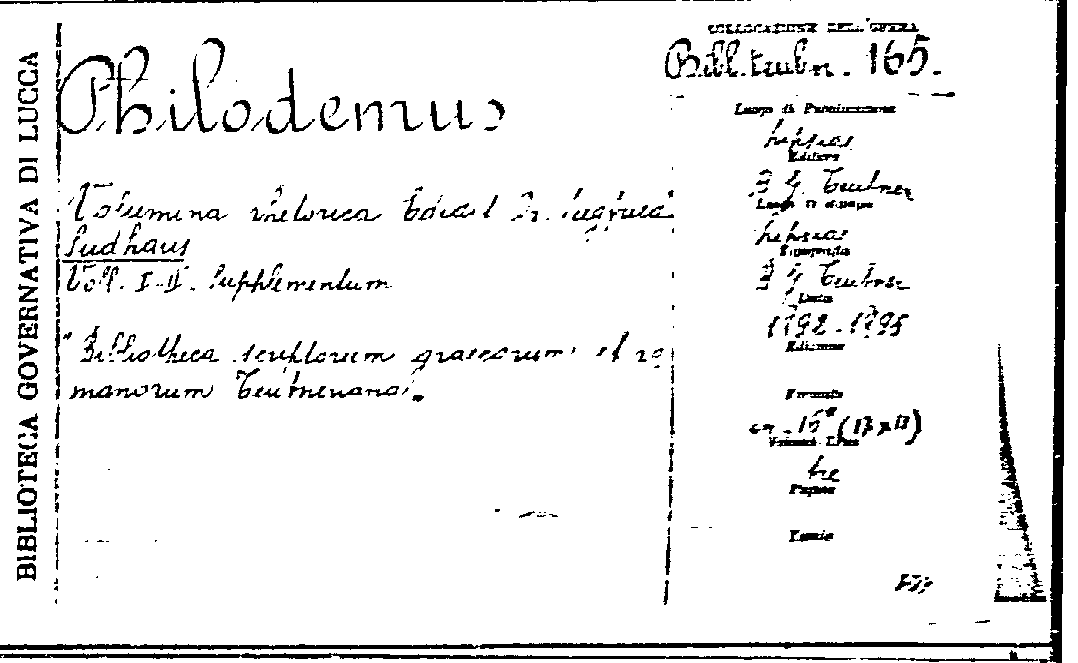 BIBLIOTECA GOVERNATIVA DI LUCCA
Philodemus
Volumina rhetorica Edidit Dr. Siegfried
Sudhaus
Voll. I-II. Supplementum
"Bibliotheca scriptorum graecorum et ro
manorum Teubneriana".
COLLOCAZIONE DELL'OPERA
Bibl. Teubn. 165.
Luogo di Pubblicazione
Lipsiae
Editore
B G Teubner
Luogo di stampa
Lipsiae
B G Teubner
Data
1892-1895
Edizione
Formato
-16° (17x11)
tre
Pagine